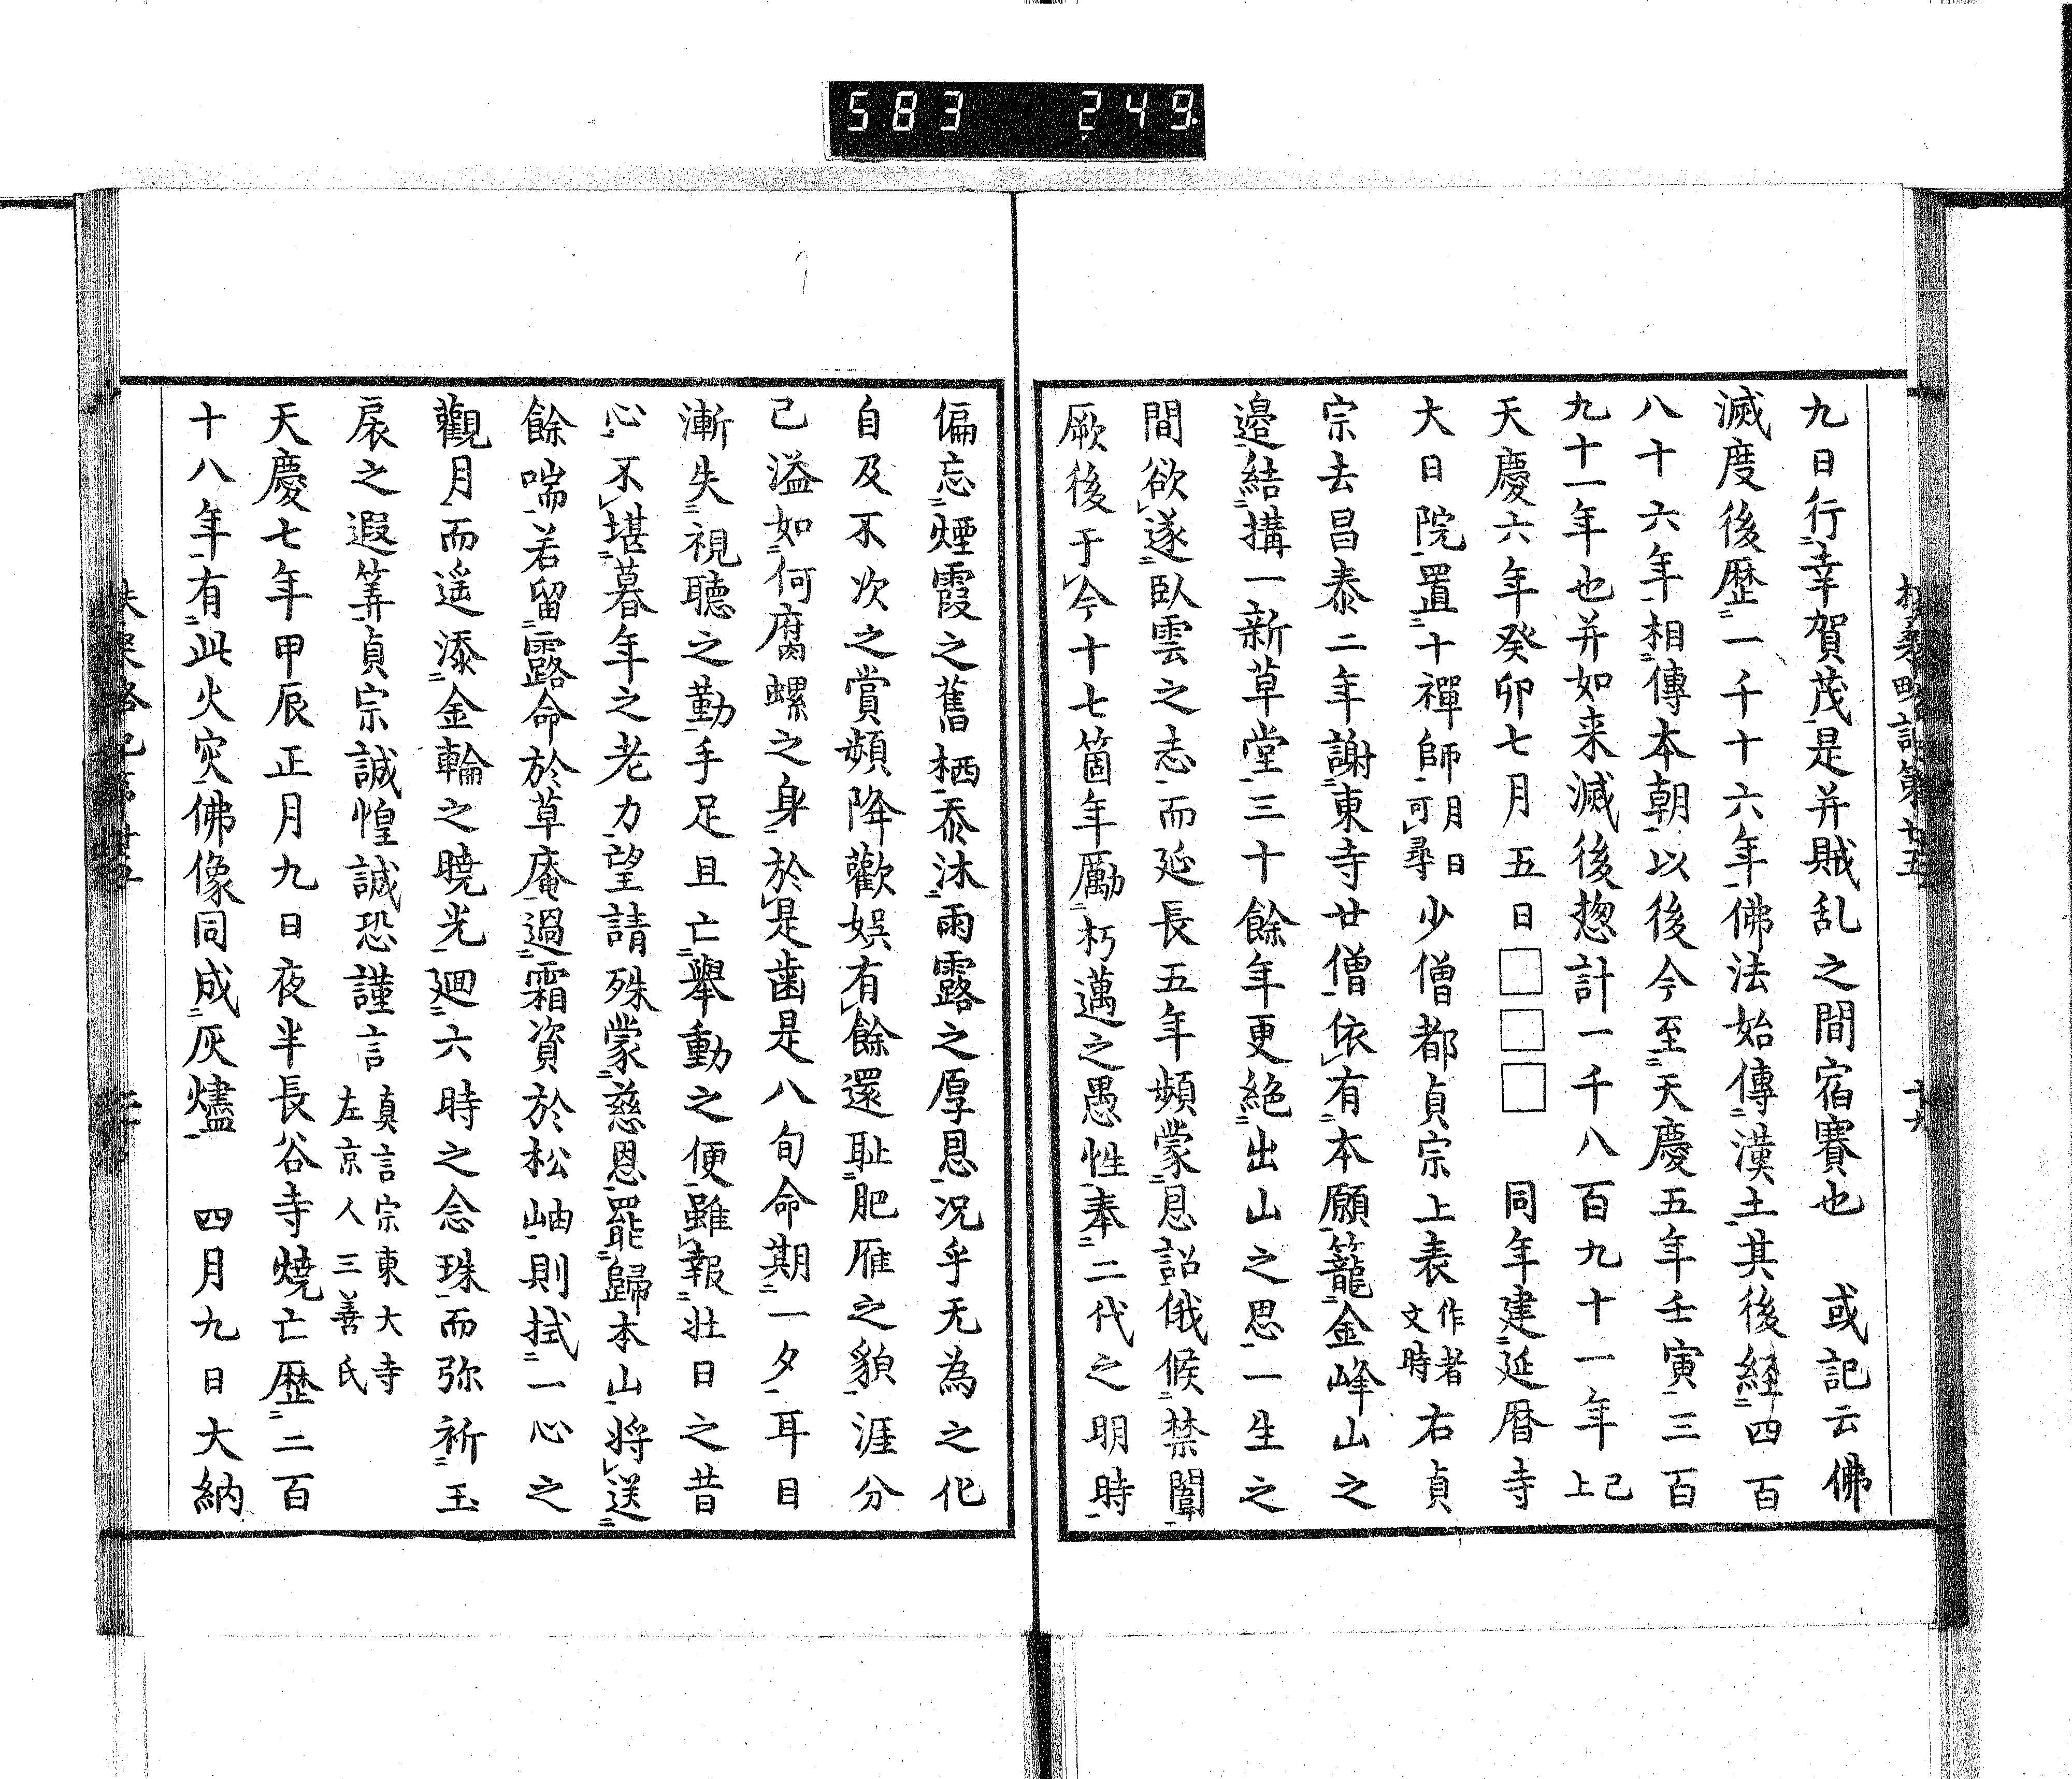 583 249
扶桑略記第廿五 十六
九日行幸賀茂是并賊乱之間宿賽也 或記云佛
滅度後歴一千十六年佛法始傳漢土其後経四百
八十六年相傳本朝以後今至天慶五年壬寅三百
九十一年也并如来滅後惣計一千八百九十一年已上
天慶六年癸卯七月五日□□□ 同年建延暦寺
大日院置十禪師月日可尋少僧都貞宗上表作者文時右貞
宗去昌泰二年謝東寺廿僧依有本願籠金峰山之
邉結搆一新草堂三十餘年更絶出山之思一生之
間欲遂臥雲之志而延長五年頻蒙恩詔俄候禁闈
厥後于今十七箇年勵朽邁之愚性奉二代之明時
偏忘煙霞之舊栖忝沐雨露之厚恩况乎无為之化
自及不次之賞頻降歡娯有餘還耻肥雁之貌涯分
已溢如何腐螺之身於是歯是八旬命期一夕耳目
漸失視聽之勤手足且亡舉動之便雖報壮日之昔
心不堪暮年之老力望請殊蒙慈恩罷歸本山将送
餘喘若留露命於草庵過霜資於松岫則拭一心之
觀月而遥添金輪之暁光廻六時之念珠而弥祈玉
扆之遐筭貞宗誠惶誠恐謹言真言宗東大寺左京人三善氏
天慶七年甲辰正月九日夜半長谷寺燒亡歴二百
十八年有此火灾佛像同成灰燼 四月九日大納